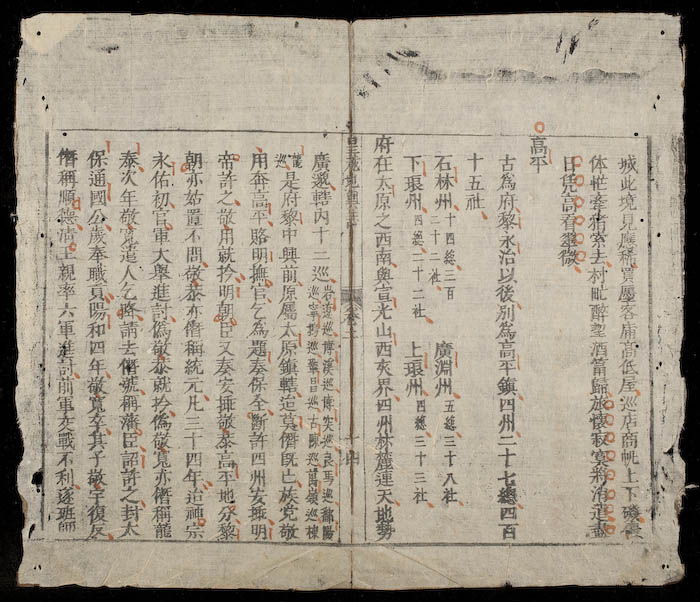 城此境見應稀買屋客庯高低屋巡店商帆上下磯
体椎牽猪索去村氓醉望酒帘歸旅懷寂寞新消遣盡
日凭高看翠微
高平
古為府黎永治以後別為高平鎮四州二十七總四百
十五社
石林州 十四總二百二十二社 廣淵州 五總三十八社
下琅州 四總二十二社 上琅州 四總三十三社
府在太原之西南與宣光山西夾界四州林麓連天地勢
皇越地輿誌 卷之二 十四
廣邈轄內十二巡 岩邊巡博溪巡博突巡良馬巡錦陽
巡寧揚巡巢昌巡古陳巡萬嶺巡棟
龍巡 是府黎中興前原屬太原鎮轄迨莫僭既亡族党敬
用奔高平賂明撫官乞為題奏保全斷許四州安插明
帝許之敬用就擒明朝臣又奏安插敬恭高平地分黎
朝亦姑置不問敬恭亦僭稱統元凡三十四年迨神宗
永佑初官軍大舉進討偽敬恭就擒偽敬寬亦僭稱龍
泰次年敬寬遣人乞賂請去僭號稱藩臣詔許之封太
保通國公歲奉職貢陽和四年敬寬卒其子敬宇復反
僭稱順德淸王親率六軍進討前軍交戰不利遂班師